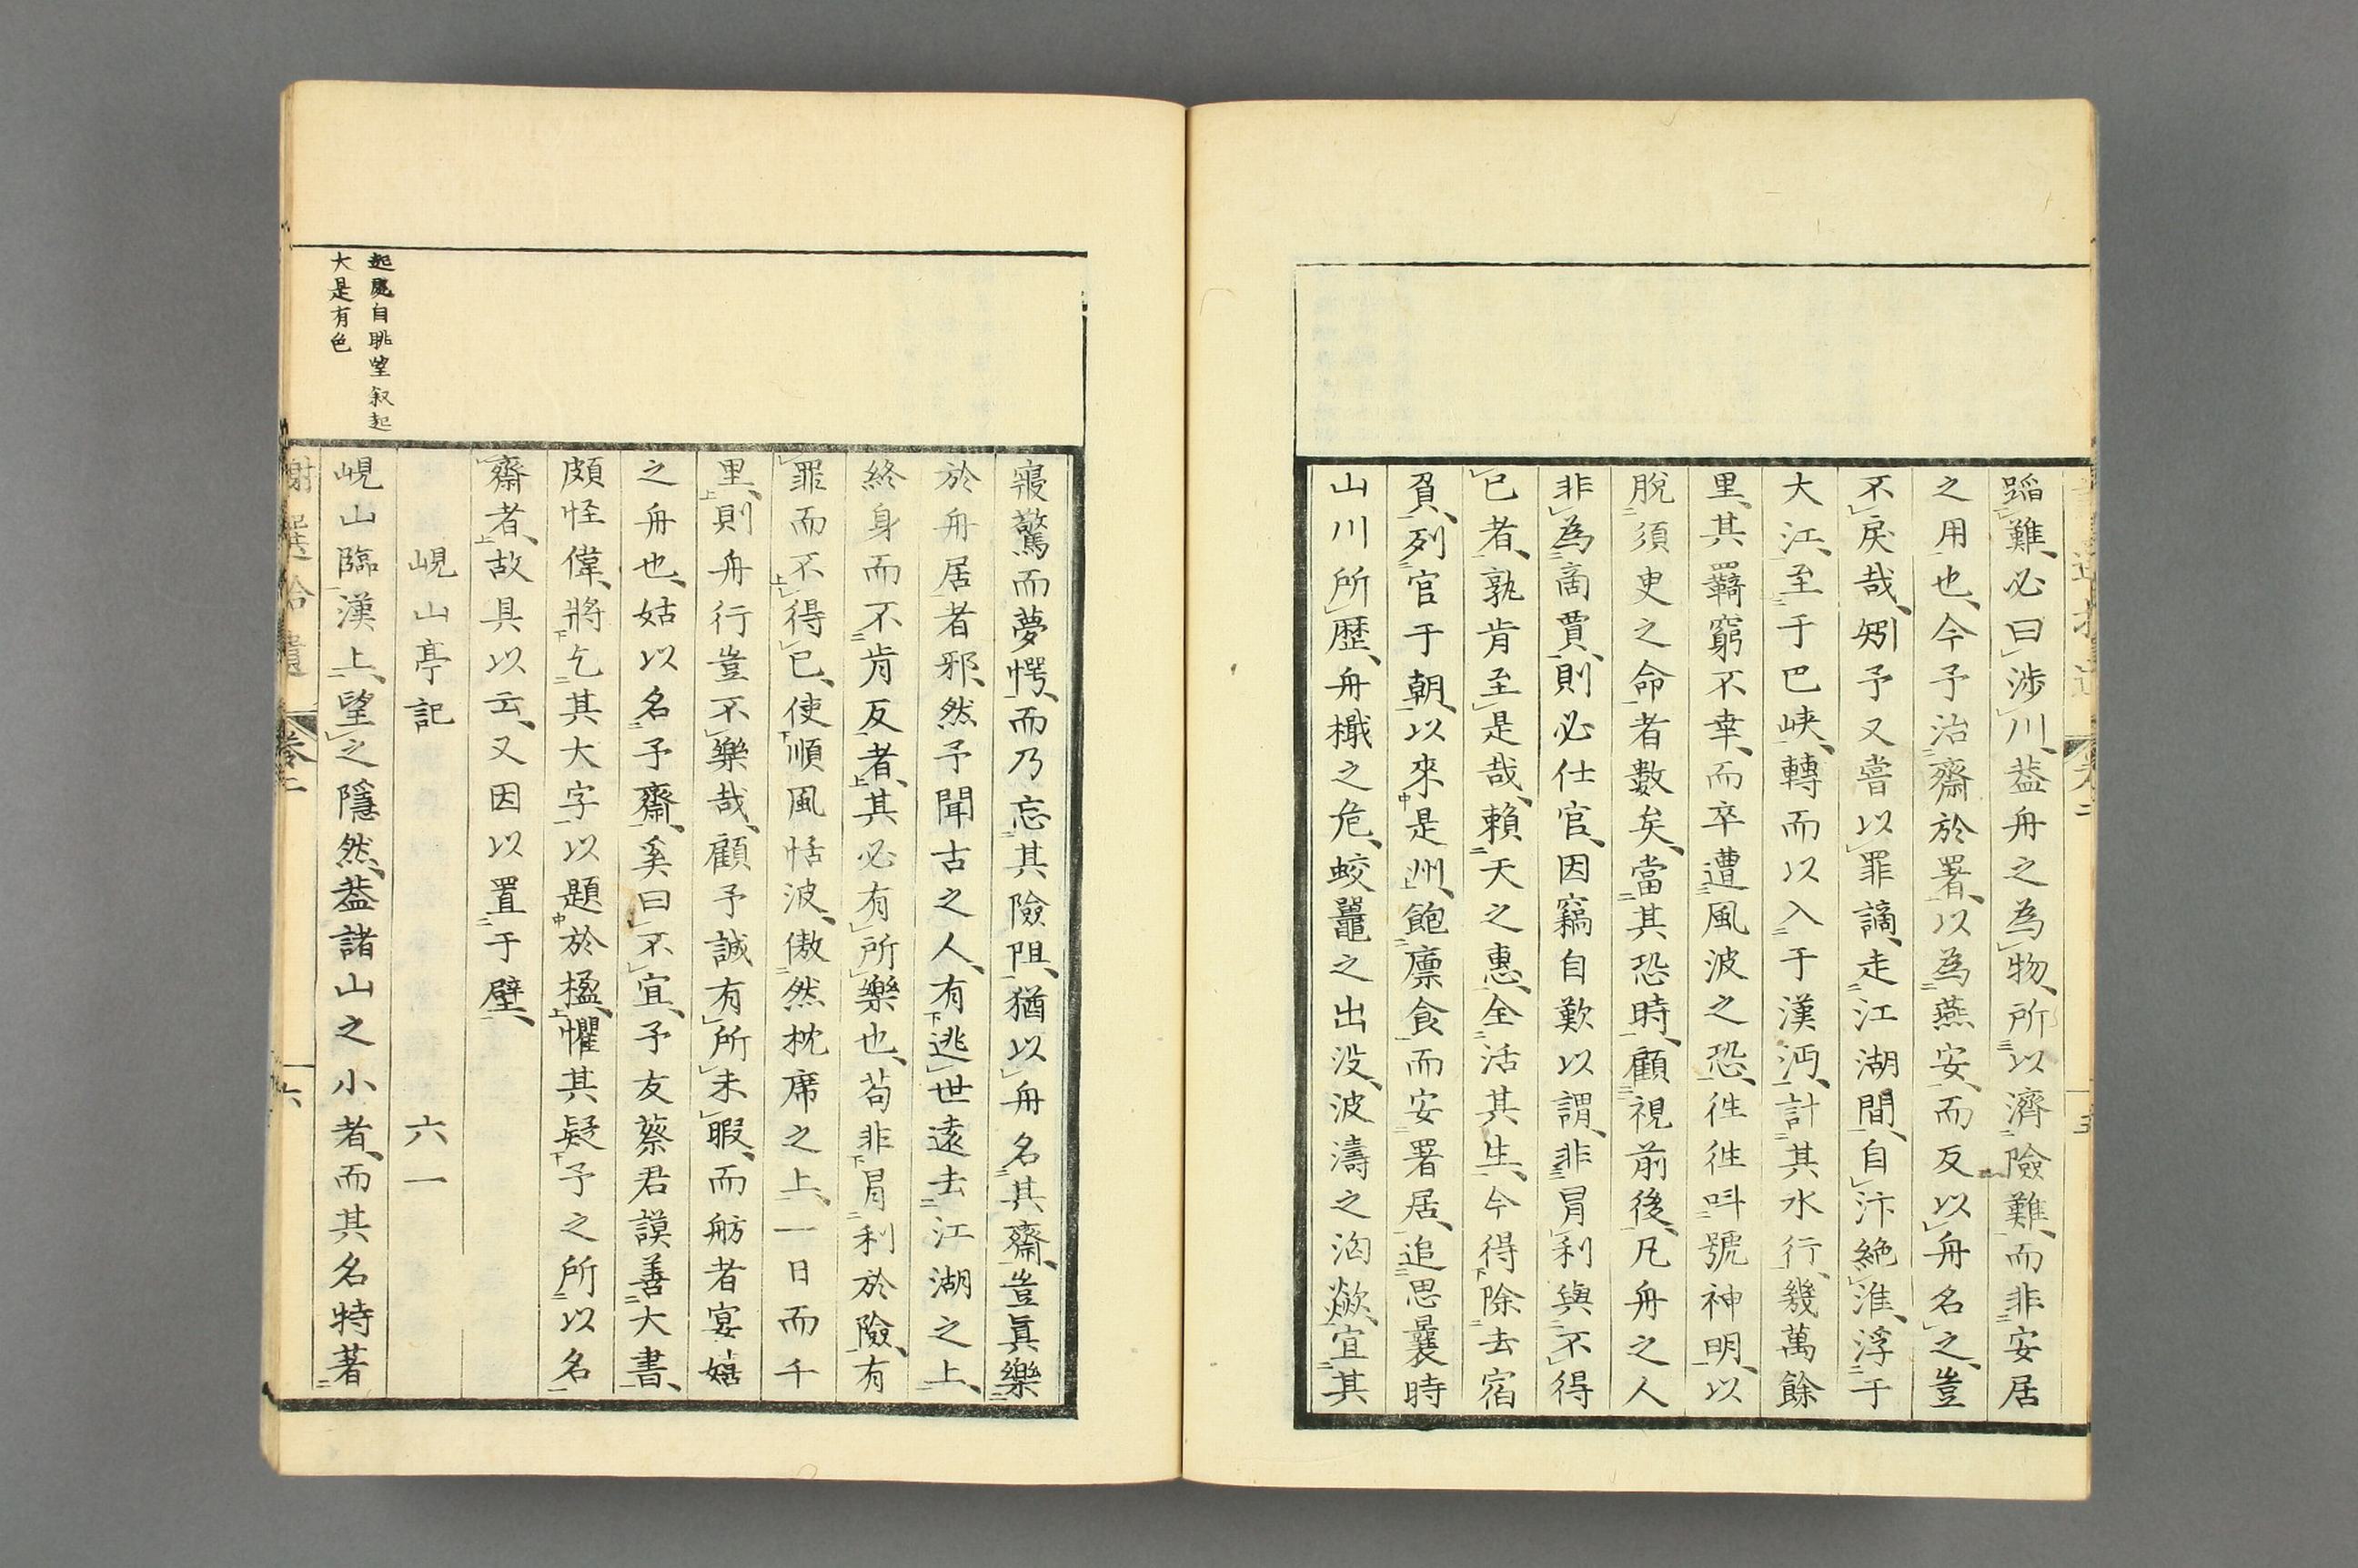 蹈難必曰渉川蓋舟之為物所以濟險難而非安居
之用也今予治齋於署以為燕安而反以舟名之豈
不戾哉矧予又嘗以罪謫走江湖間自汴絶淮浮于
大江至于巴峡轉而以入于漢沔計其水行幾萬餘
里其羇窮不幸而卒遭風波之恐徃徃呌號神明以
脱須叟之命者數矣當其恐時顧視前後凡舟之人
非為啇賈則必仕官因竊自歎以謂非冐利與不得
已者孰肯至是哉賴天之惠全活其生今得除去宿
負列官于朝以來是州飽廪食而安署居追思曩時
山川所歴舟檝之危蛟鼉之出没波濤之洶歘宜其
寢驚而夢愕而乃忘其險阻猶以舟名其齋豈眞樂
於舟居者邪然予聞古之人有逃世遠去江湖之上
終身而不肯反者其必有所樂也苟非冐利於險有
罪而不得已使順風恬波傲然枕席之上一日而千
里則舟行豈不樂哉顧予誠有所未暇而舫者宴嬉
之舟也姑以名予齋奚曰不宜予友蔡君謨善大書
頗怪偉將乞其大字以題於楹懼其疑予之所以名
齋者故具以云又因以置于壁
峴山亭記　六一
起處自眺望叙起
大是有色
峴山臨漢上望之隱然蓋諸山之小者而其名特著
謝選拾遺　卷二　六